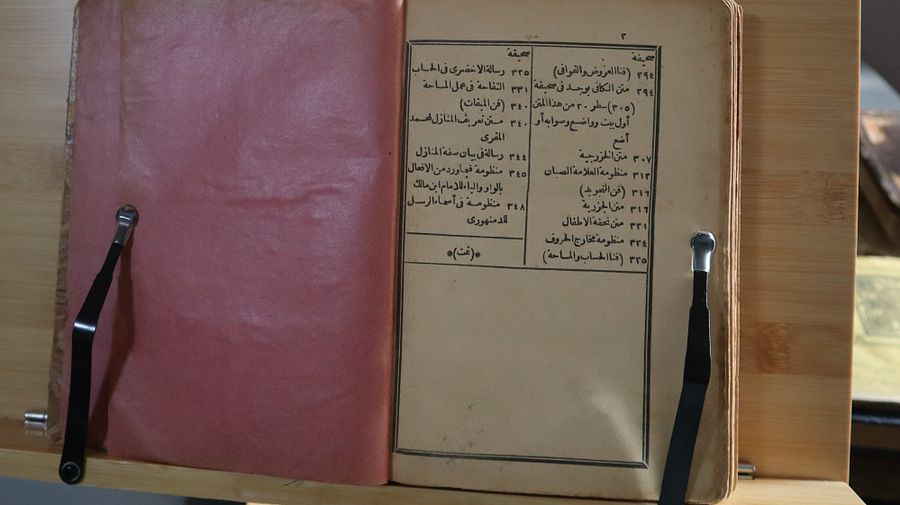 ٢
صحيفة
٢٩٤ (فنا العروض والقوافى)
٢٩٤ متن الكافى يوجد فى صحيفة
(٣٠٥) سطر ٢٠ من هذا المتن
أول بيت وواضع وصوابه أو
أضع
٣٠٧ متن الخزرجية
٣١٢ منظومة العلامة الصبان
٣١٦ (فن التجويد)
٣١٦ متن الجزرية
٣٢١ متن تحفة الاطفال
٣٢٤ منظومة مخارج الحروف
٣٢٥ (فنا الحساب والمساحة)
صحيفة
٣٢٥ رسالة الاخضرى فى الحساب
٣٣١ التفاحة فى عمل المساحة
٣٤٠ (فن الميقات)
٣٤٠ متن تعريف المنازل لمحمد
المقرى
٣٤٤ رسالة فى بيان صفة المنازل
٣٤٥ منظومة فيما ورد من الافعال
بالواو والياء للامام ابن مالك
٣٤٨ منظومة فى أسماء الرسل
للدمنهورى
*(تمت)*